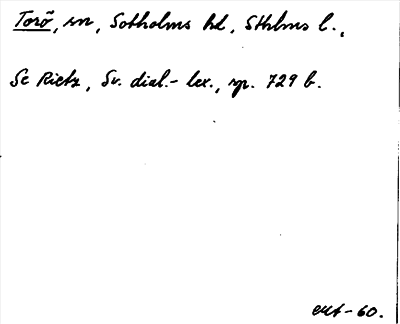 Torö, sn, Sotholms hd, Sthlms l.,
Se Rietz, Sv. dial.-lex., sp. 729 b.
okt-60.